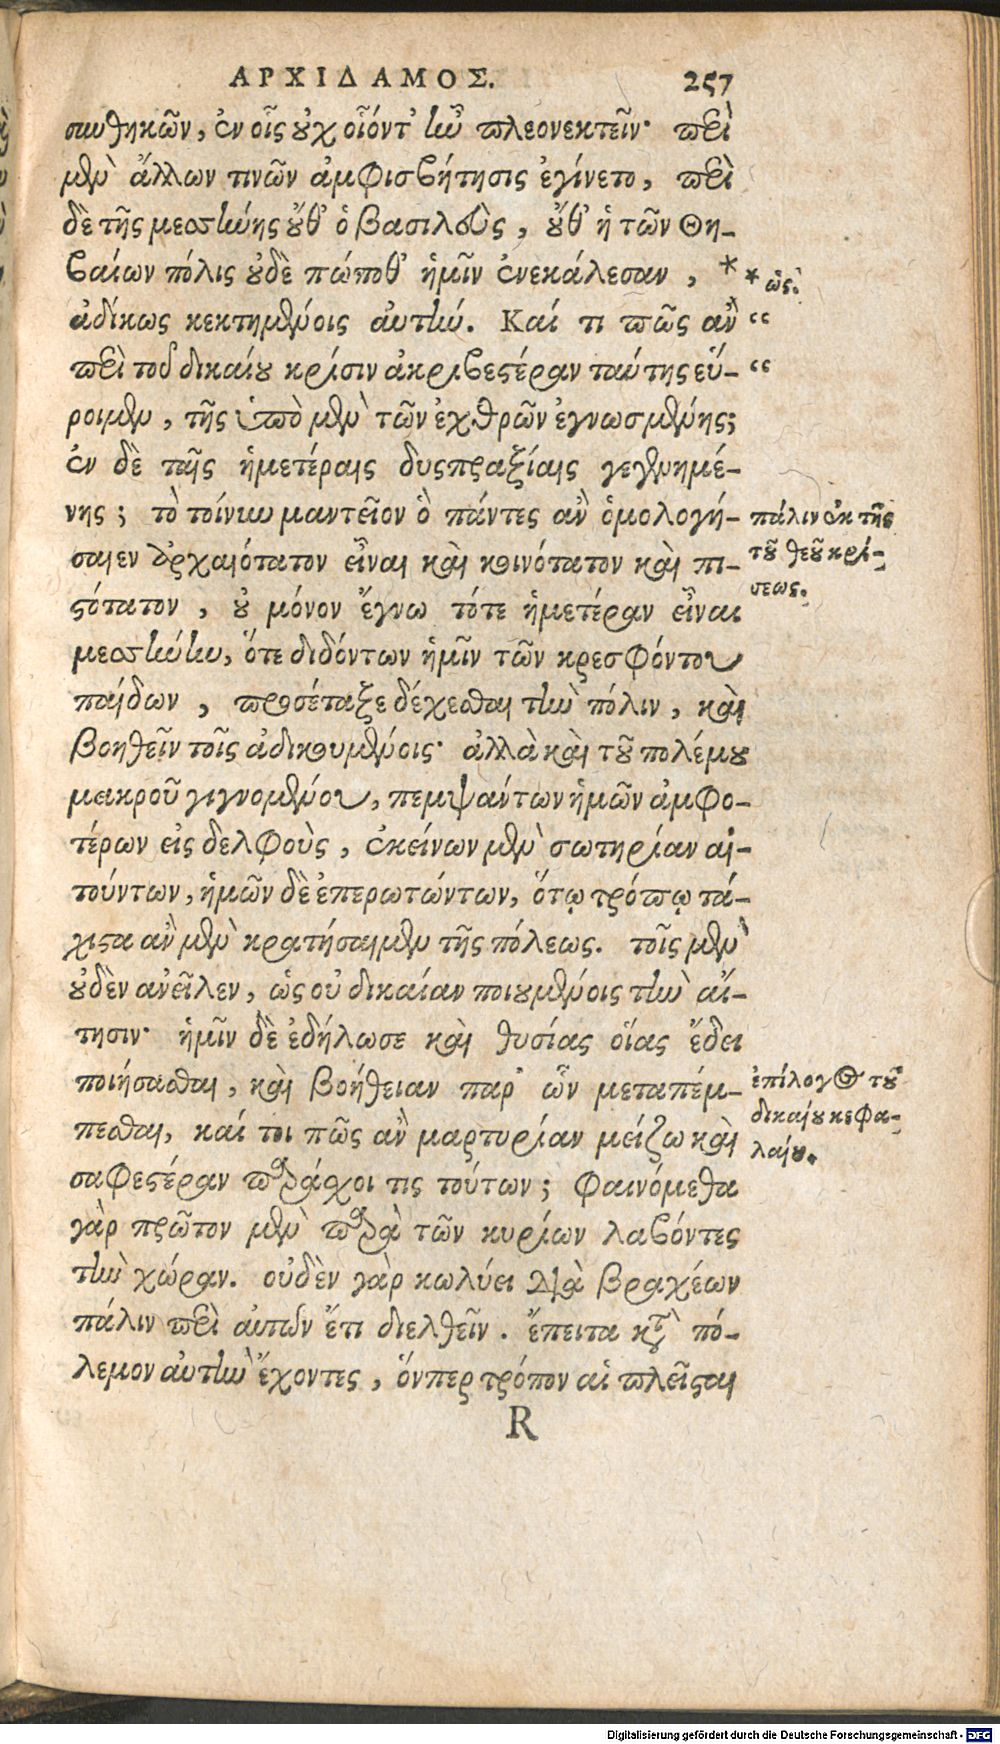 ΑΡΧΙΔΑΜΟΣ. 257
συνθηκῶν, ἐν οἷς οὐχ οἷόντ' ἦν πλεονεκτεῖν· περὶ
μὲν ἄλλων τινῶν ἀμφισβήτησις ἐγίνετο, περὶ
δὲ τῆς μεσσήνης οὔθ' ὁ βασιλεὺς, οὔθ' ἡ τῶν Θη-
βαίων πόλις οὐδὲ πώποθ' ἡμῖν ἐνεκάλεσαν, *
* ὡς.
ἀδίκως κεκτημένοις αὐτήν. Καί τι πῶς ἂν “
περὶ τοῦ δικαίου κρίσιν ἀκριβεστέραν ταύτης εὕ- “
ροιμεν, τῆς ὑπὸ μὲν τῶν ἐχθρῶν ἐγνωσμένης;
ἐν δὲ ταῖς ἡμετέραις δυσπραξίαις γεγενημέ-
νης; τὸ τοίνυν μαντεῖον ὃ πάντες ἂν ὁμολογή-
σαιεν ἀρχαιότατον εἶναι καὶ κοινότατον καὶ πι-
στότατον, οὐ μόνον ἔγνω τότε ἡμετέραν εἶναι
πάλιν ἐκ τῆς
τοῦ θεοῦ κρί-
σεως.
μεσσήνην, ὅτε διδόντων ἡμῖν τῶν κρεσφόντου
παίδων, προσέταξε δέχεσθαι τὴν πόλιν, καὶ
βοηθεῖν τοῖς ἀδικουμένοις· ἀλλὰ καὶ τοῦ πολέμου
μακροῦ γιγνομένου, πεμψάντων ἡμῶν ἀμφο-
τέρων εἰς δελφοὺς, ἐκείνων μὲν σωτηρίαν αἰ-
τούντων, ἡμῶν δὲ ἐπερωτώντων, ὅτῳ τρόπῳ τά-
χιστα ἂν μὲν κρατήσαιμεν τῆς πόλεως. τοῖς μὲν
οὐδὲν ἀνεῖλεν, ὡς οὐ δικαίαν ποιουμένοις τὴν αἴ-
τησιν· ἡμῖν δὲ ἐδήλωσε καὶ θυσίας οἵας ἔδει
ποιήσασθαι, καὶ βοήθειαν παρ' ὧν μεταπέμ-
πεσθαι, καί τοι πῶς ἂν μαρτυρίαν μείζω καὶ
σαφεστέραν παράσχοι τις τούτων; φαινόμεθα
ἐπίλογος τοῦ
δικαίου κεφα-
λαίου.
γὰρ πρῶτον μὲν παρὰ τῶν κυρίων λαβόντες
τὴν χώραν. οὐδὲν γὰρ κωλύει διὰ βραχέων
πάλιν περὶ αὐτῶν ἔτι διελθεῖν. ἔπειτα κατὰ πό-
λεμον αὐτὴν ἔχοντες, ὅνπερ τρόπον αἱ πλεῖσται
R
Digitalisierung gefördert durch die Deutsche Forschungsgemeinschaft - DFG